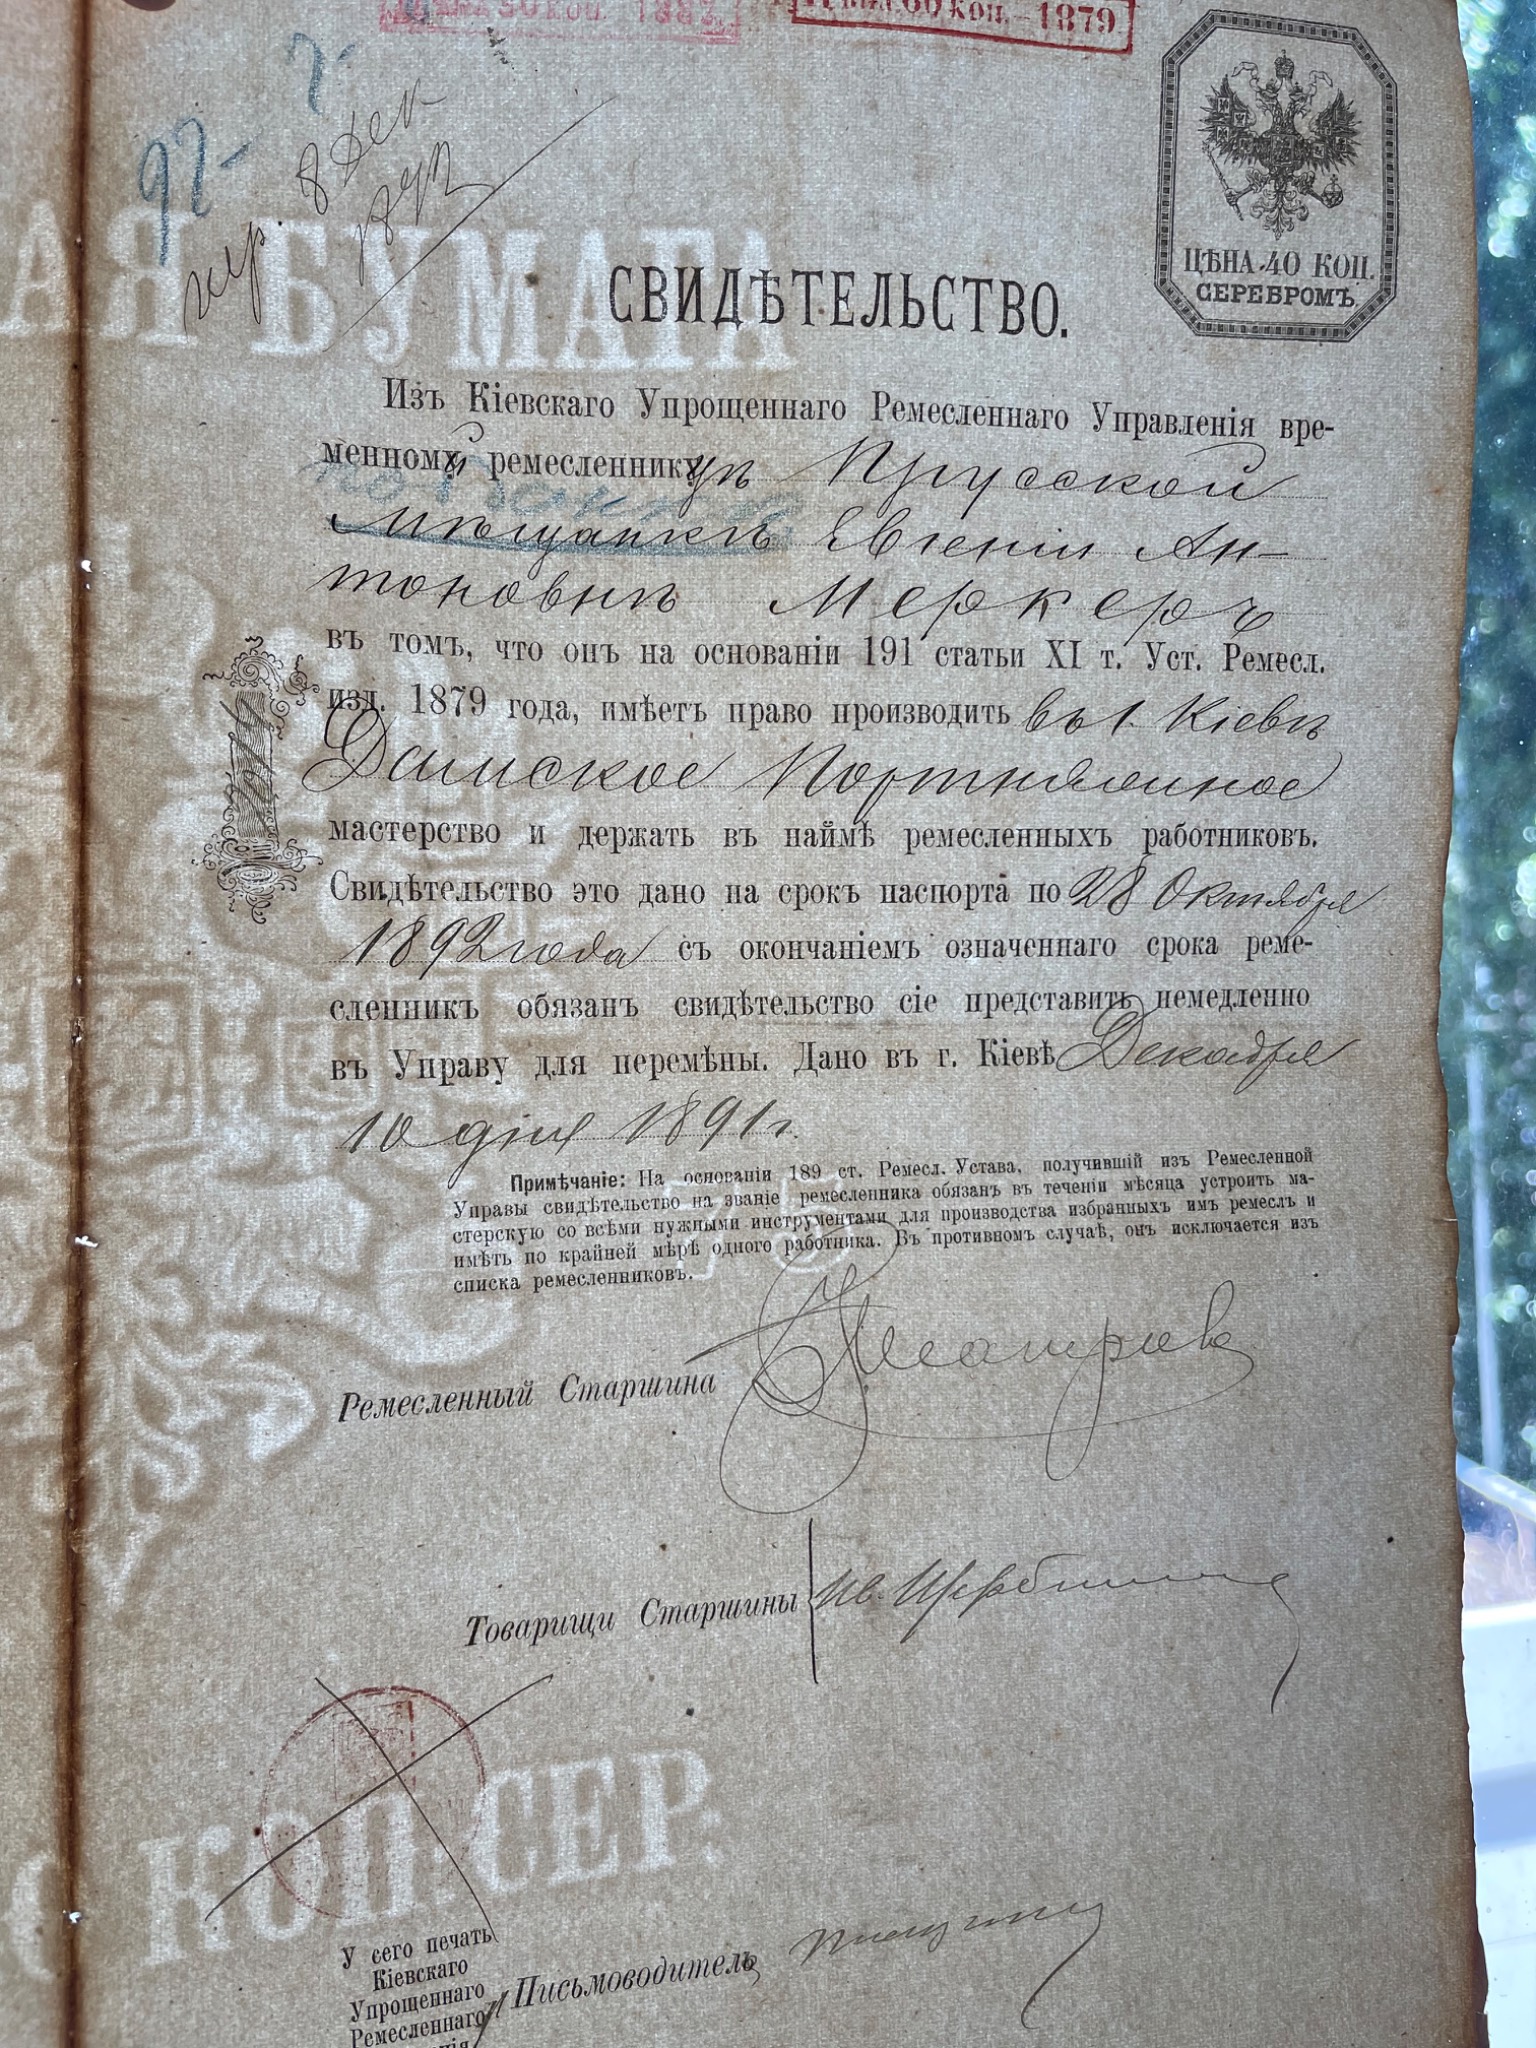 60 коп. 1879
ЦѢНА 40 КОП.
СЕРЕБРОМЪ.
97-
8 Дек
АЯ БУМАГА
СВИДѢТЕЛЬСТВО.
Изъ Кіевскаго Упрощеннаго Ремесленнаго Управленія вре-
менной ремесленницѣ Прусской
Мѣщанкѣ Евгеніи Ан-
тоновнѣ Меркеръ
въ томъ, что онъ на основаніи 191 статьи XI т. Уст. Ремесл.
изд. 1879 года, имѣетъ право производить въ г. Кіевѣ
Дамское Портняжное
мастерство и держать въ наймѣ ремесленныхъ работниковъ.
Свидѣтельство это дано на срокъ паспорта по 28 Октября
1892 года съ окончаніемъ означеннаго срока реме-
сленникъ обязанъ свидѣтельство сіе представить немедленно
въ Управу для перемѣны. Дано въ г. Кіевѣ Декабря
10 дня 1891 г.
Примѣчаніе: На основаніи 189 ст. Ремесл. Устава, получившій изъ Ремесленной
Управы свидѣтельство на званіе ремесленника обязанъ въ теченіи мѣсяца устроить ма-
стерскую со всѣми нужными инструментами для производства избранныхъ имъ ремеслъ и
имѣть по крайней мѣрѣ одного работника. Въ противномъ случаѣ, онъ исключается изъ
списка ремесленниковъ.
Ремесленный Старшина
Товарищи Старшины Ив. Щербина
КОП. СЕР.
У сего печать
Кіевскаго
Упрощеннаго
Ремесленнаго
Письмоводитель